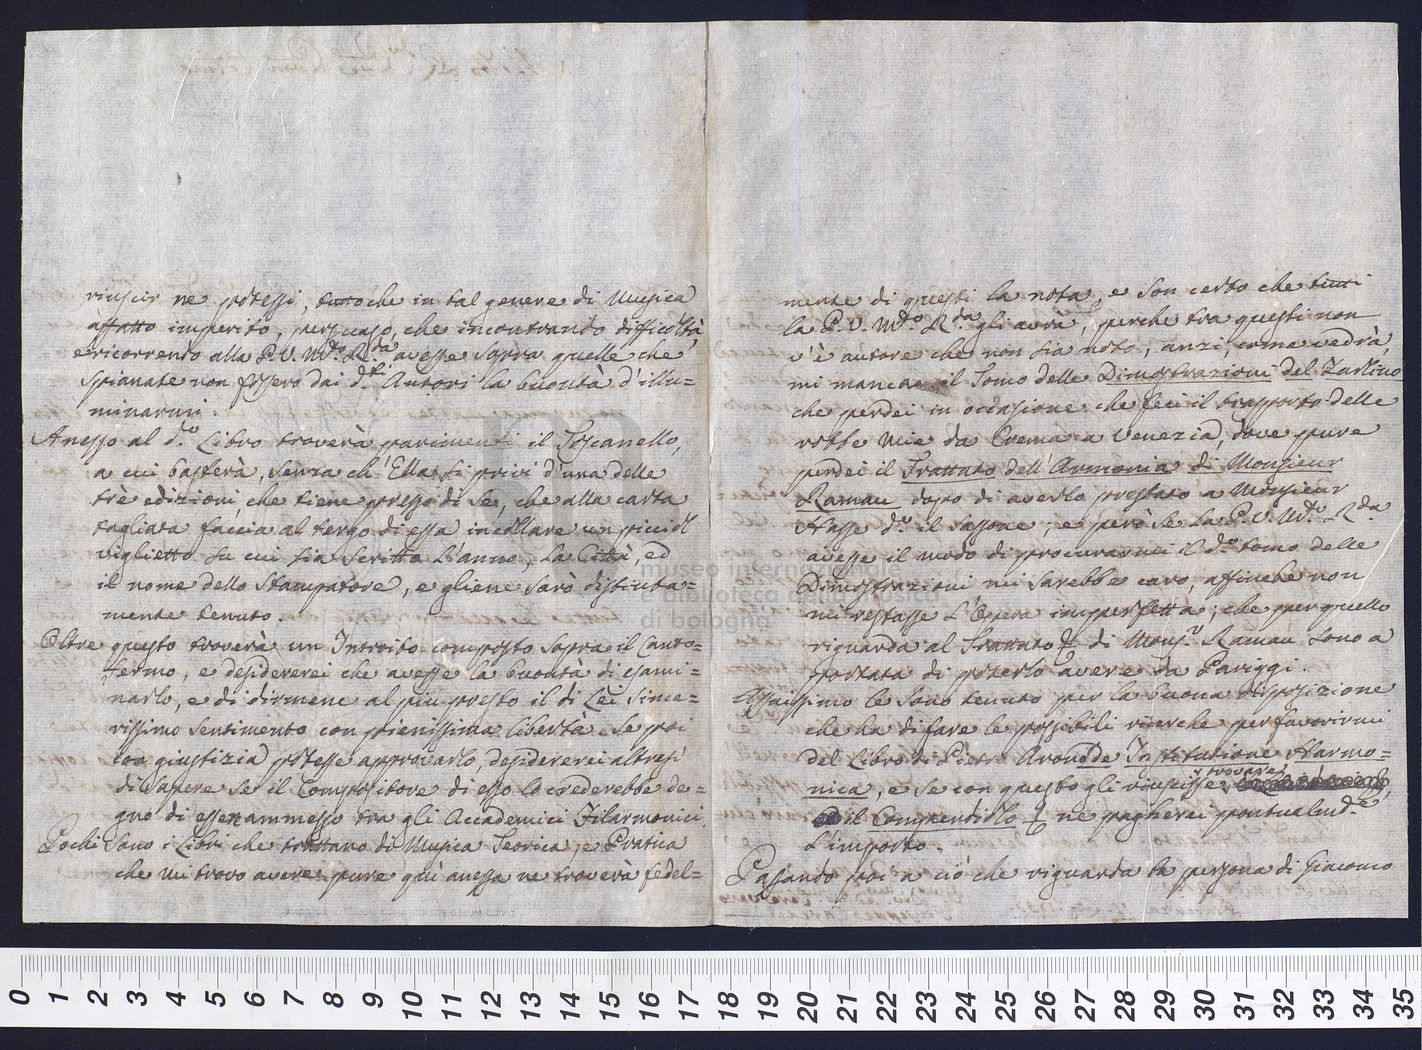 riuscir ne potessi, tutto che in tal genere di Musica
affatto imperito, per caso, che incontrando difficoltà,
e ricorrendo alla P. V. M.to R.da avesse sopra quelle che
spianate non fossero dai d.ti Autori la buontà d'illu=
minarmi.
Anesso al d.o Libro troverà parimenti il Toscanello,
a cui basterà, senza ch'Ella si privi d'una delle
trè edizioni, che tiene presso di se, che alla carta
tagliata faccia al tergo di essa incollare un piccol
viglietto su cui sia scritto l'anno, la Città, ed
il nome dello Stampatore, e gliene sarò distinta=
mente tenuto.
Oltre questo troverà un Introito composto sopra il Canto=
fermo, e desidererei che avesse la buontà di esami=
narlo, e di dirmene al più presto il di Lei since=
rissimo sentimento con pienissima libertà. Se poi
con giustizia potesse approvarlo, desidererei altresì
di sapere se il Compositore di esso lo crederebbe de=
gno di essere ammesso tra gli Accademici Filarmonici.
Pochi sono i Libri che trattano di Musica Teorica, e Pratica
che mi trovo avere, pure quì anessa ne troverà fedel=
mente di questi la nota, e son certo che tutti
la P. V. M.to R.da gli avrà, perche tra questi non
v'è autore che non sia noto, anzi, come vedrà,
mi manca il Tomo delle Dimostrazioni del Zarlino
che perdei in occasione che feci il trasporto delle
robbe mie da Crema a Venezia, dove pure
perdei il Trattato dell'Armonia di Monsieur
Rameau dopo di averlo prestato a Monsieur
Hasse d.o il Sassone; e però se la P. V. M.to R.da
avesse il modo di procurarmi il d.o tomo delle
Dimostrazioni mi sarebbe caro, affinche non
mi restasse l'Opera imperfetta; che per quello
riguarda al Trattato di Mons.r Rameau sono a
portata di poterlo avere da Pariggi.
Assaissimo le sono tenuto per la buona disposizione
che ha di fare le possibili ricerche per favorirmi
del Libro di Pietro Aron de Institutione Harmo=
nica, e se con questo gli riuscisse trovare
il Compendiolo ne pagherei pontualm.e
l'importo.
Passando poi a ciò che riguarda la persona di Giacomo
museo internazionale
e biblioteca della musica
di bologna
0 1 2 3 4 5 6 7 8 9 10 11 12 13 14 15 16 17 18 19 20 21 22 23 24 25 26 27 28 29 30 31 32 33 34 35